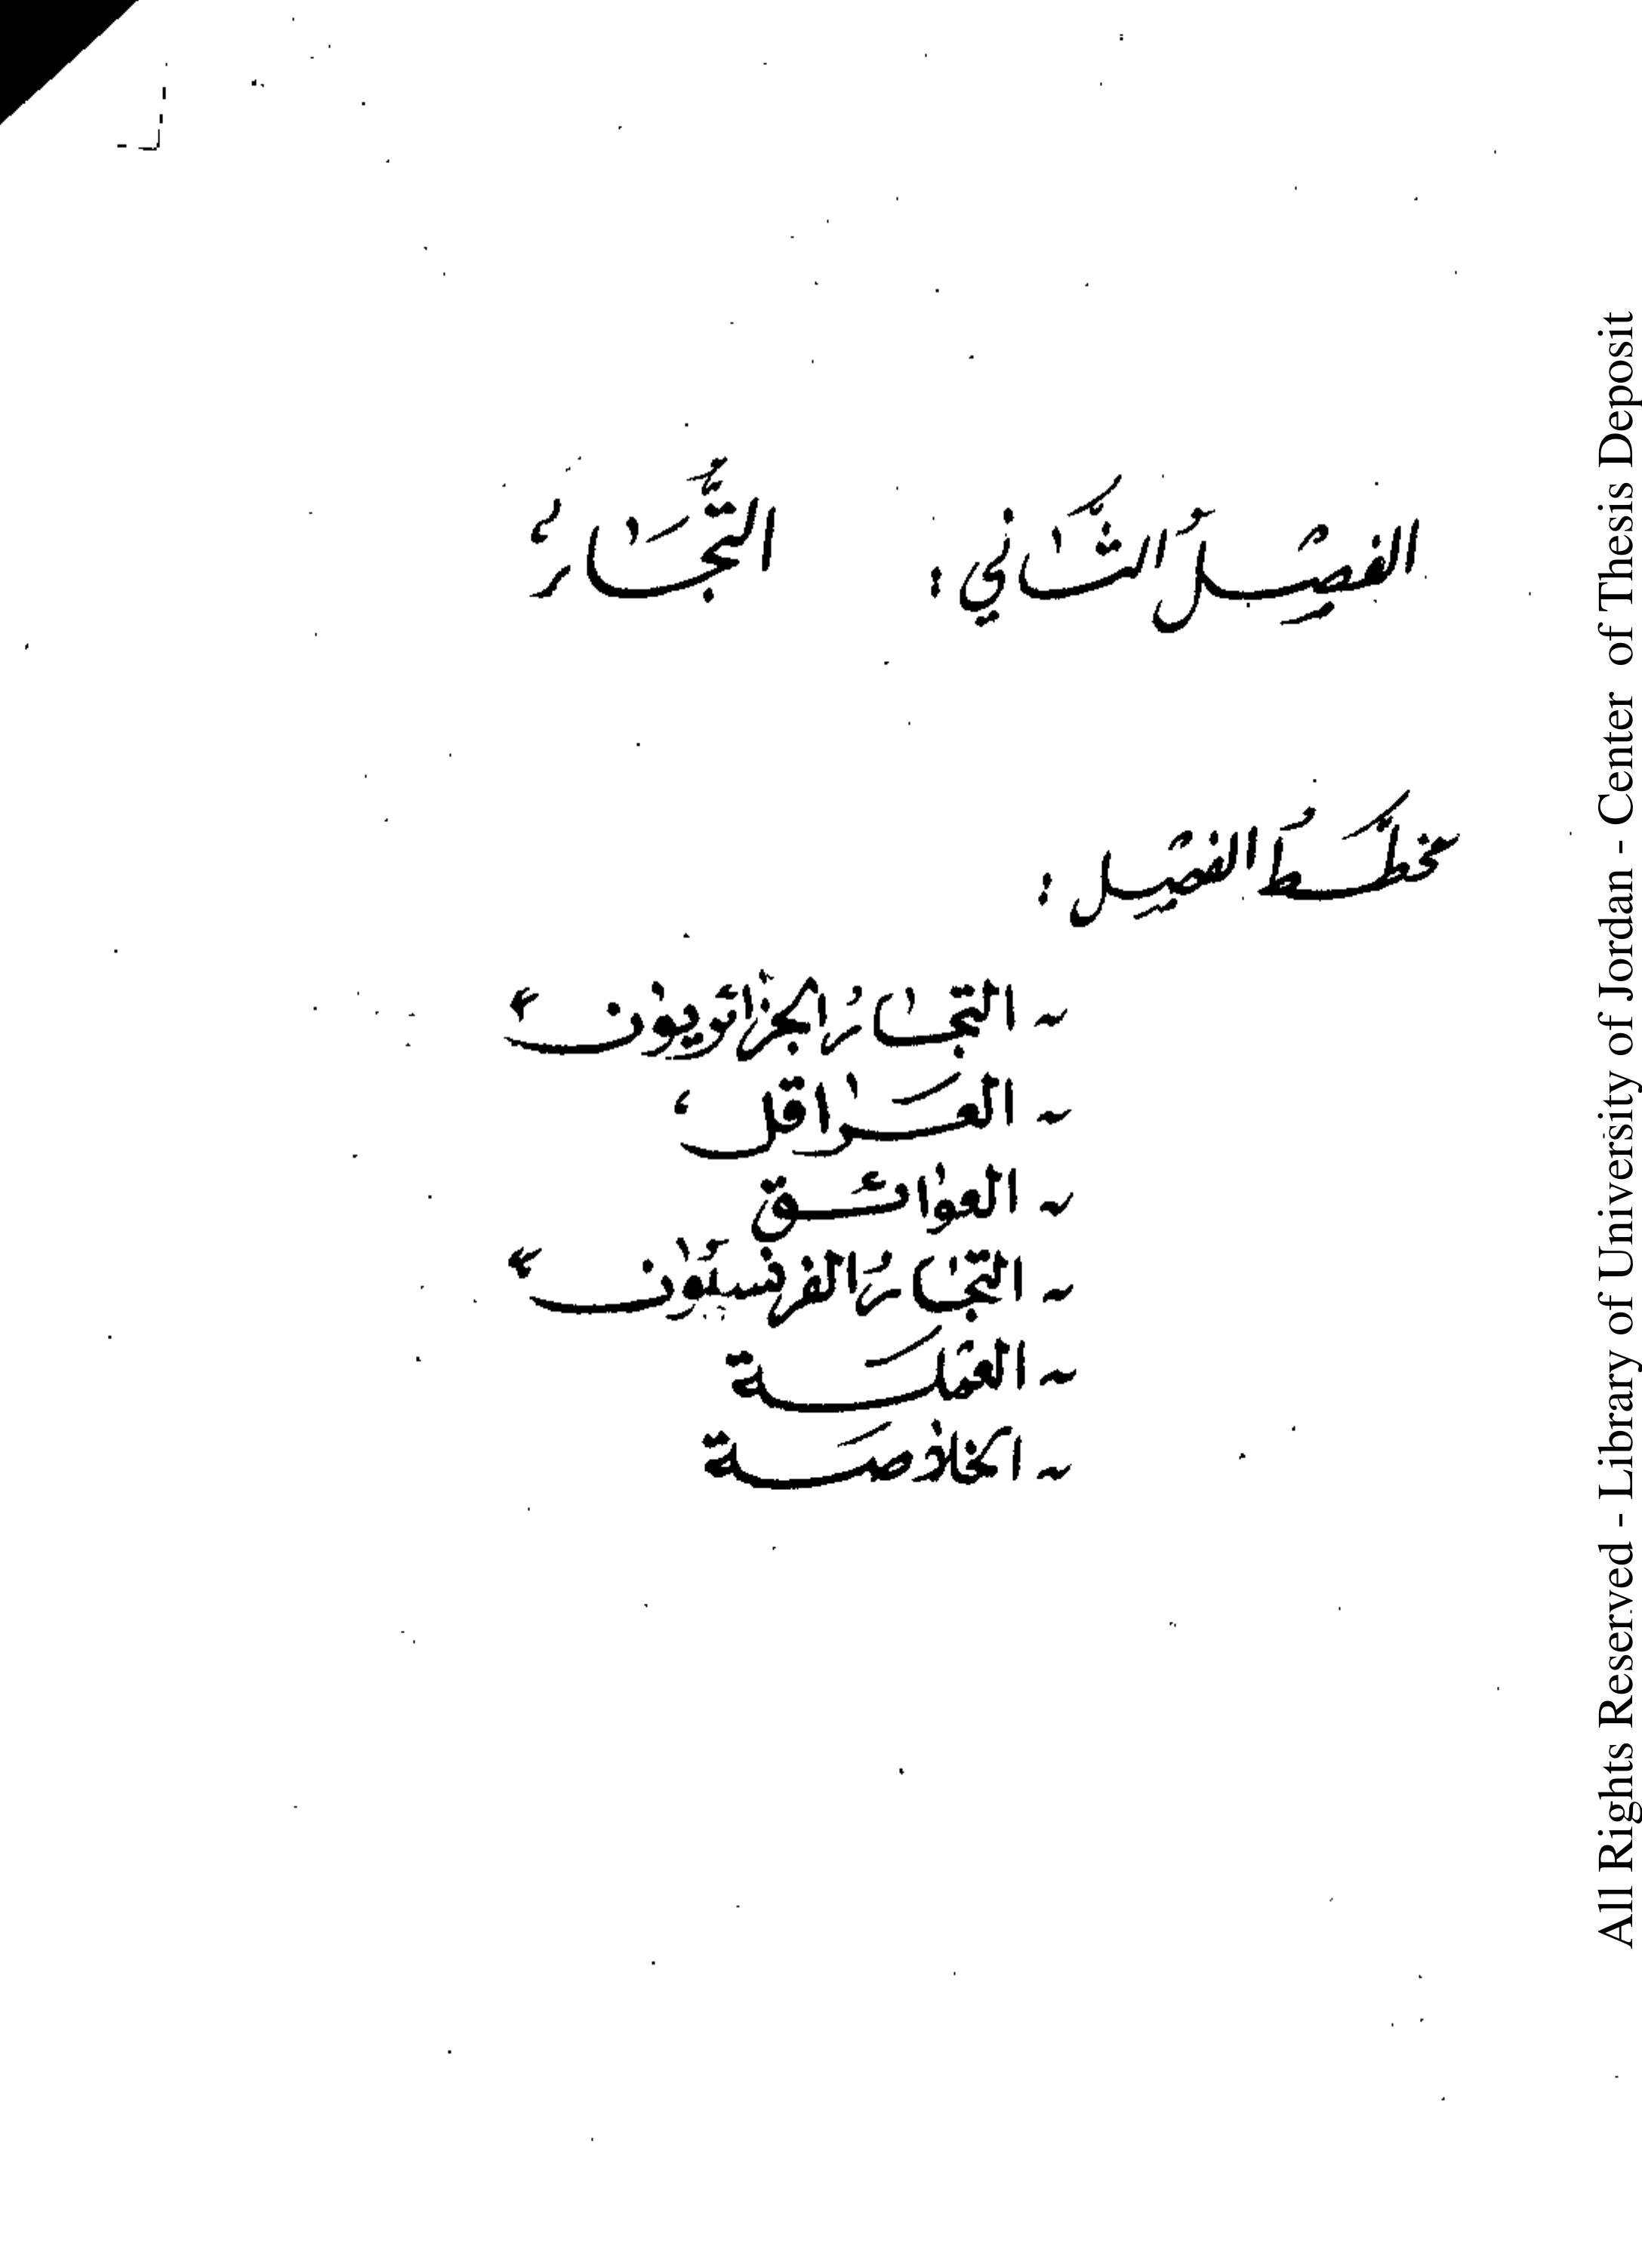 الفصل الثاني : التجار
مخطط الفصل :
~ التجار الجزائريون
~ العراقل
~ العوائق
~ التجار الفرنسيون
~ العملة
~ الخلاصة
All Rights Reserved - Library of University of Jordan - Center of Thesis Deposit